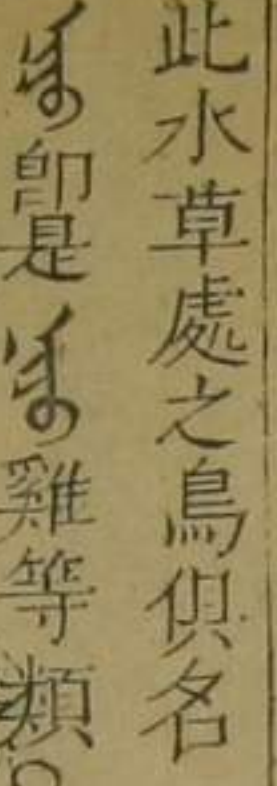 此水草處之鳥俱名
卽是 雞等類。